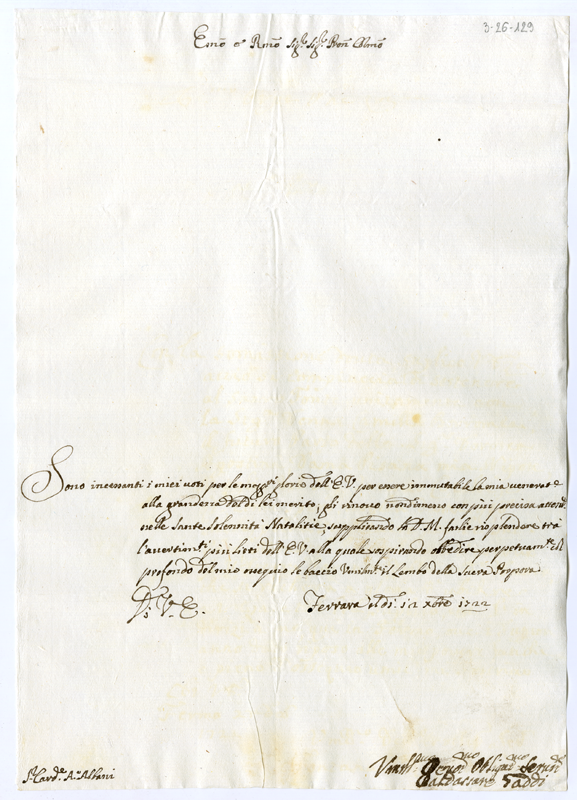 3-26-129
Em̃o e Rm̃o Sig.r Sig.r Pron̄ Colm̃o
Sono incessanti i miei voti per le magg.ri glorie dell'E.V. per essere immutabile la mia venerat.e
alla grandezza del di lei merito; gli rinovo nondimeno con più precisa
nelle Sante Solennità Natalitie supplicando S.D.M. farle risplendere trà
più lieti dell'E.V. alla quale sospirando obbedire perpetuam.te col
profondo del mio ossequio le baccio Umilm.te il Lembo della Sacra Porpora
Di V. E.
Ferrara il dì 12 Xbre 1722
S.r Card.e A.e Albani
Umill.mo Devot.mo Obligat.mo Serv.re
Baldassare Taddi